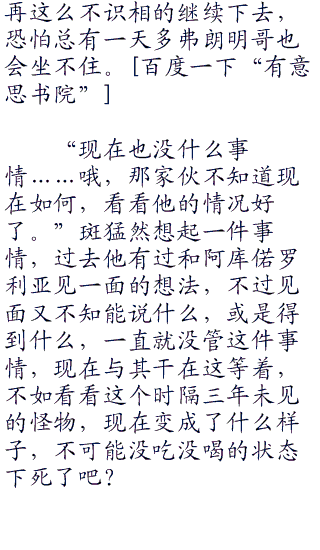 再这么不识相的继续下去，
恐怕总有一天多弗朗明哥也
会坐不住。[百度一下“有意
思书院”]
“现在也没什么事
情……哦，那家伙不知道现
在如何，看看他的情况好
了。”斑猛然想起一件事
情，过去他有过和阿库偌罗
利亚见一面的想法，不过见
面又不知能说什么，或是得
到什么，一直就没管这件事
情，现在与其干在这等着，
不如看看这个时隔三年未见
的怪物，现在变成了什么样
子，不可能没吃没喝的状态
下死了吧？